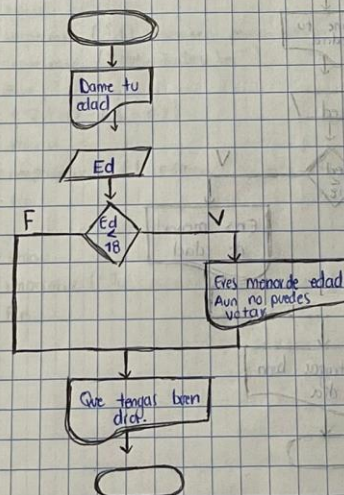 Dame tu
edad
Ed
F
Ed
<
18
V
Eres menor de edad
Aun no puedes
votar
Que tengas buen
dia.